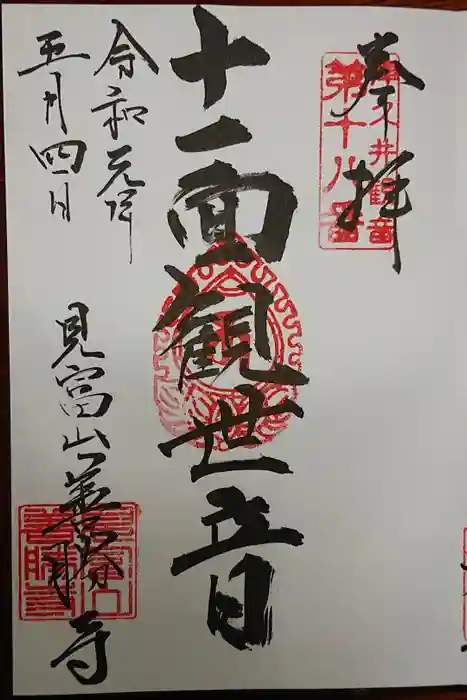 奉拝
津久井観音
第十八番
十一面観世音
令和元年
五月四日
見富山善勝寺